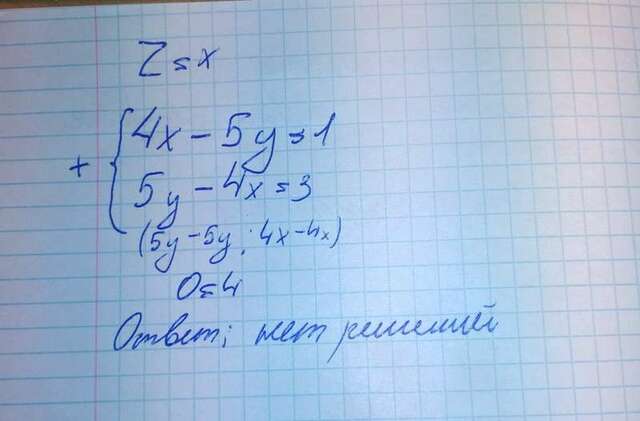 Z = x
+ { 4x - 5y = 1
5y - 4x = 3
(5y - 5y; 4x - 4x)
0 = 4
Ответ; нет решений